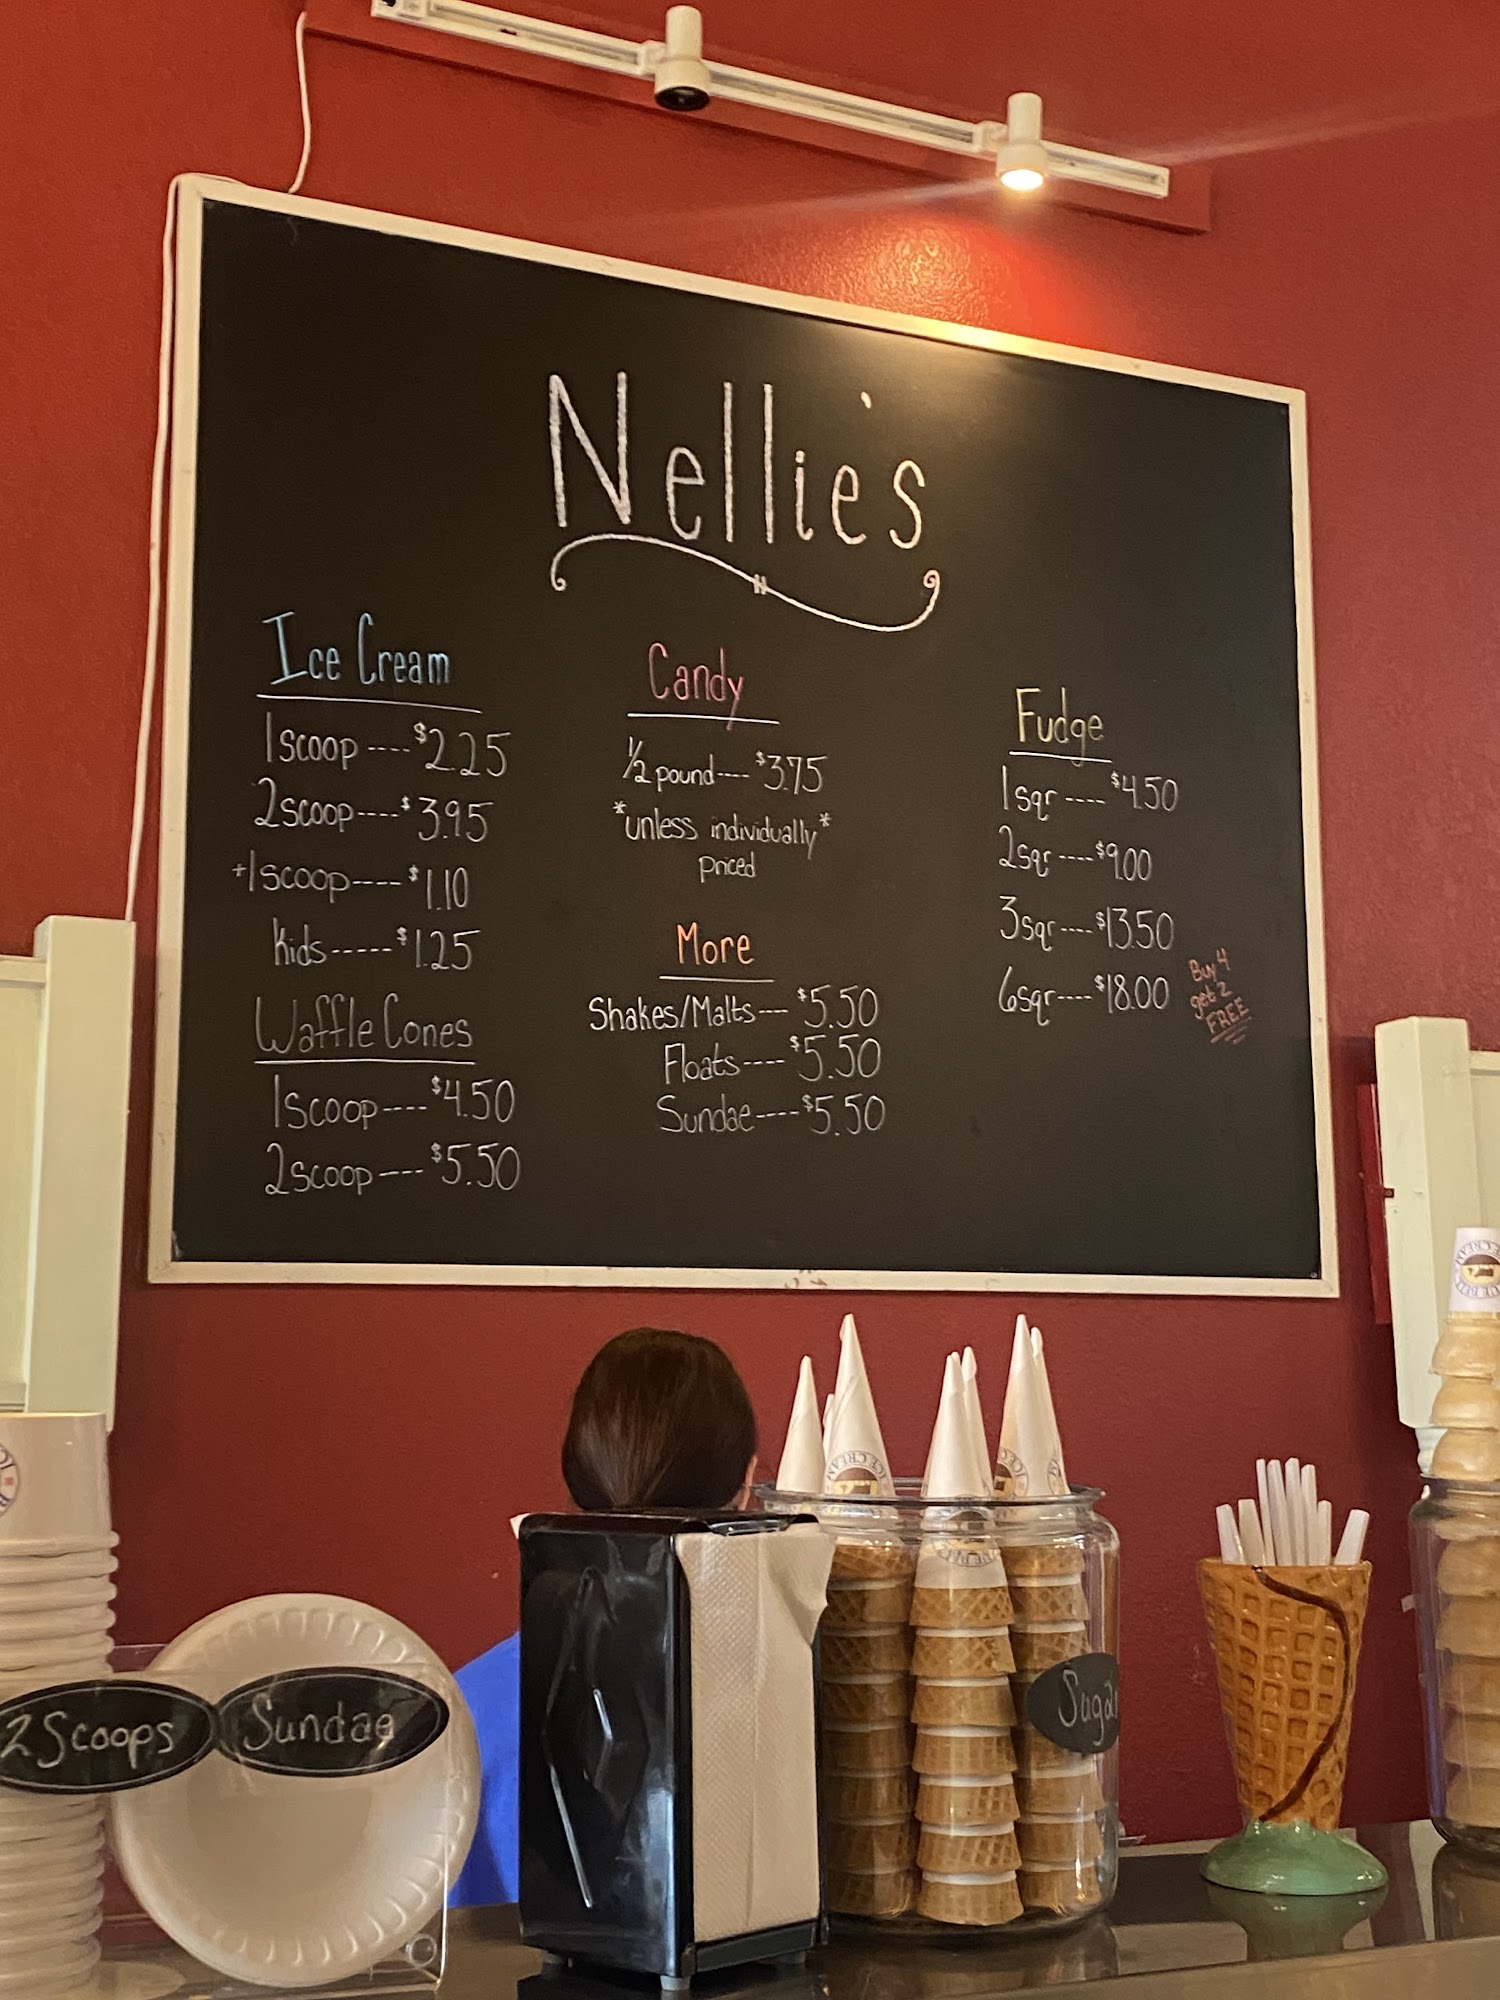 Nellie's
Ice Cream
1 scoop ---- $2.25
2 scoop ---- $3.95
+1 scoop ---- $1.10
Kids ----- $1.25
Waffle Cones
1 scoop ---- $4.50
2 scoop ---- $5.50
Candy
1/2 pound ---- $3.75
*unless individually*
priced
More
Shakes/Malts ---- $5.50
Floats ---- $5.50
Sundae ---- $5.50
Fudge
1 sqr ---- $4.50
2 sqr ---- $9.00
3 sqr ---- $13.50
6 sqr ---- $18.00
Buy 4
get 2
FREE
2 Scoops
Sundae
ICE CREAM